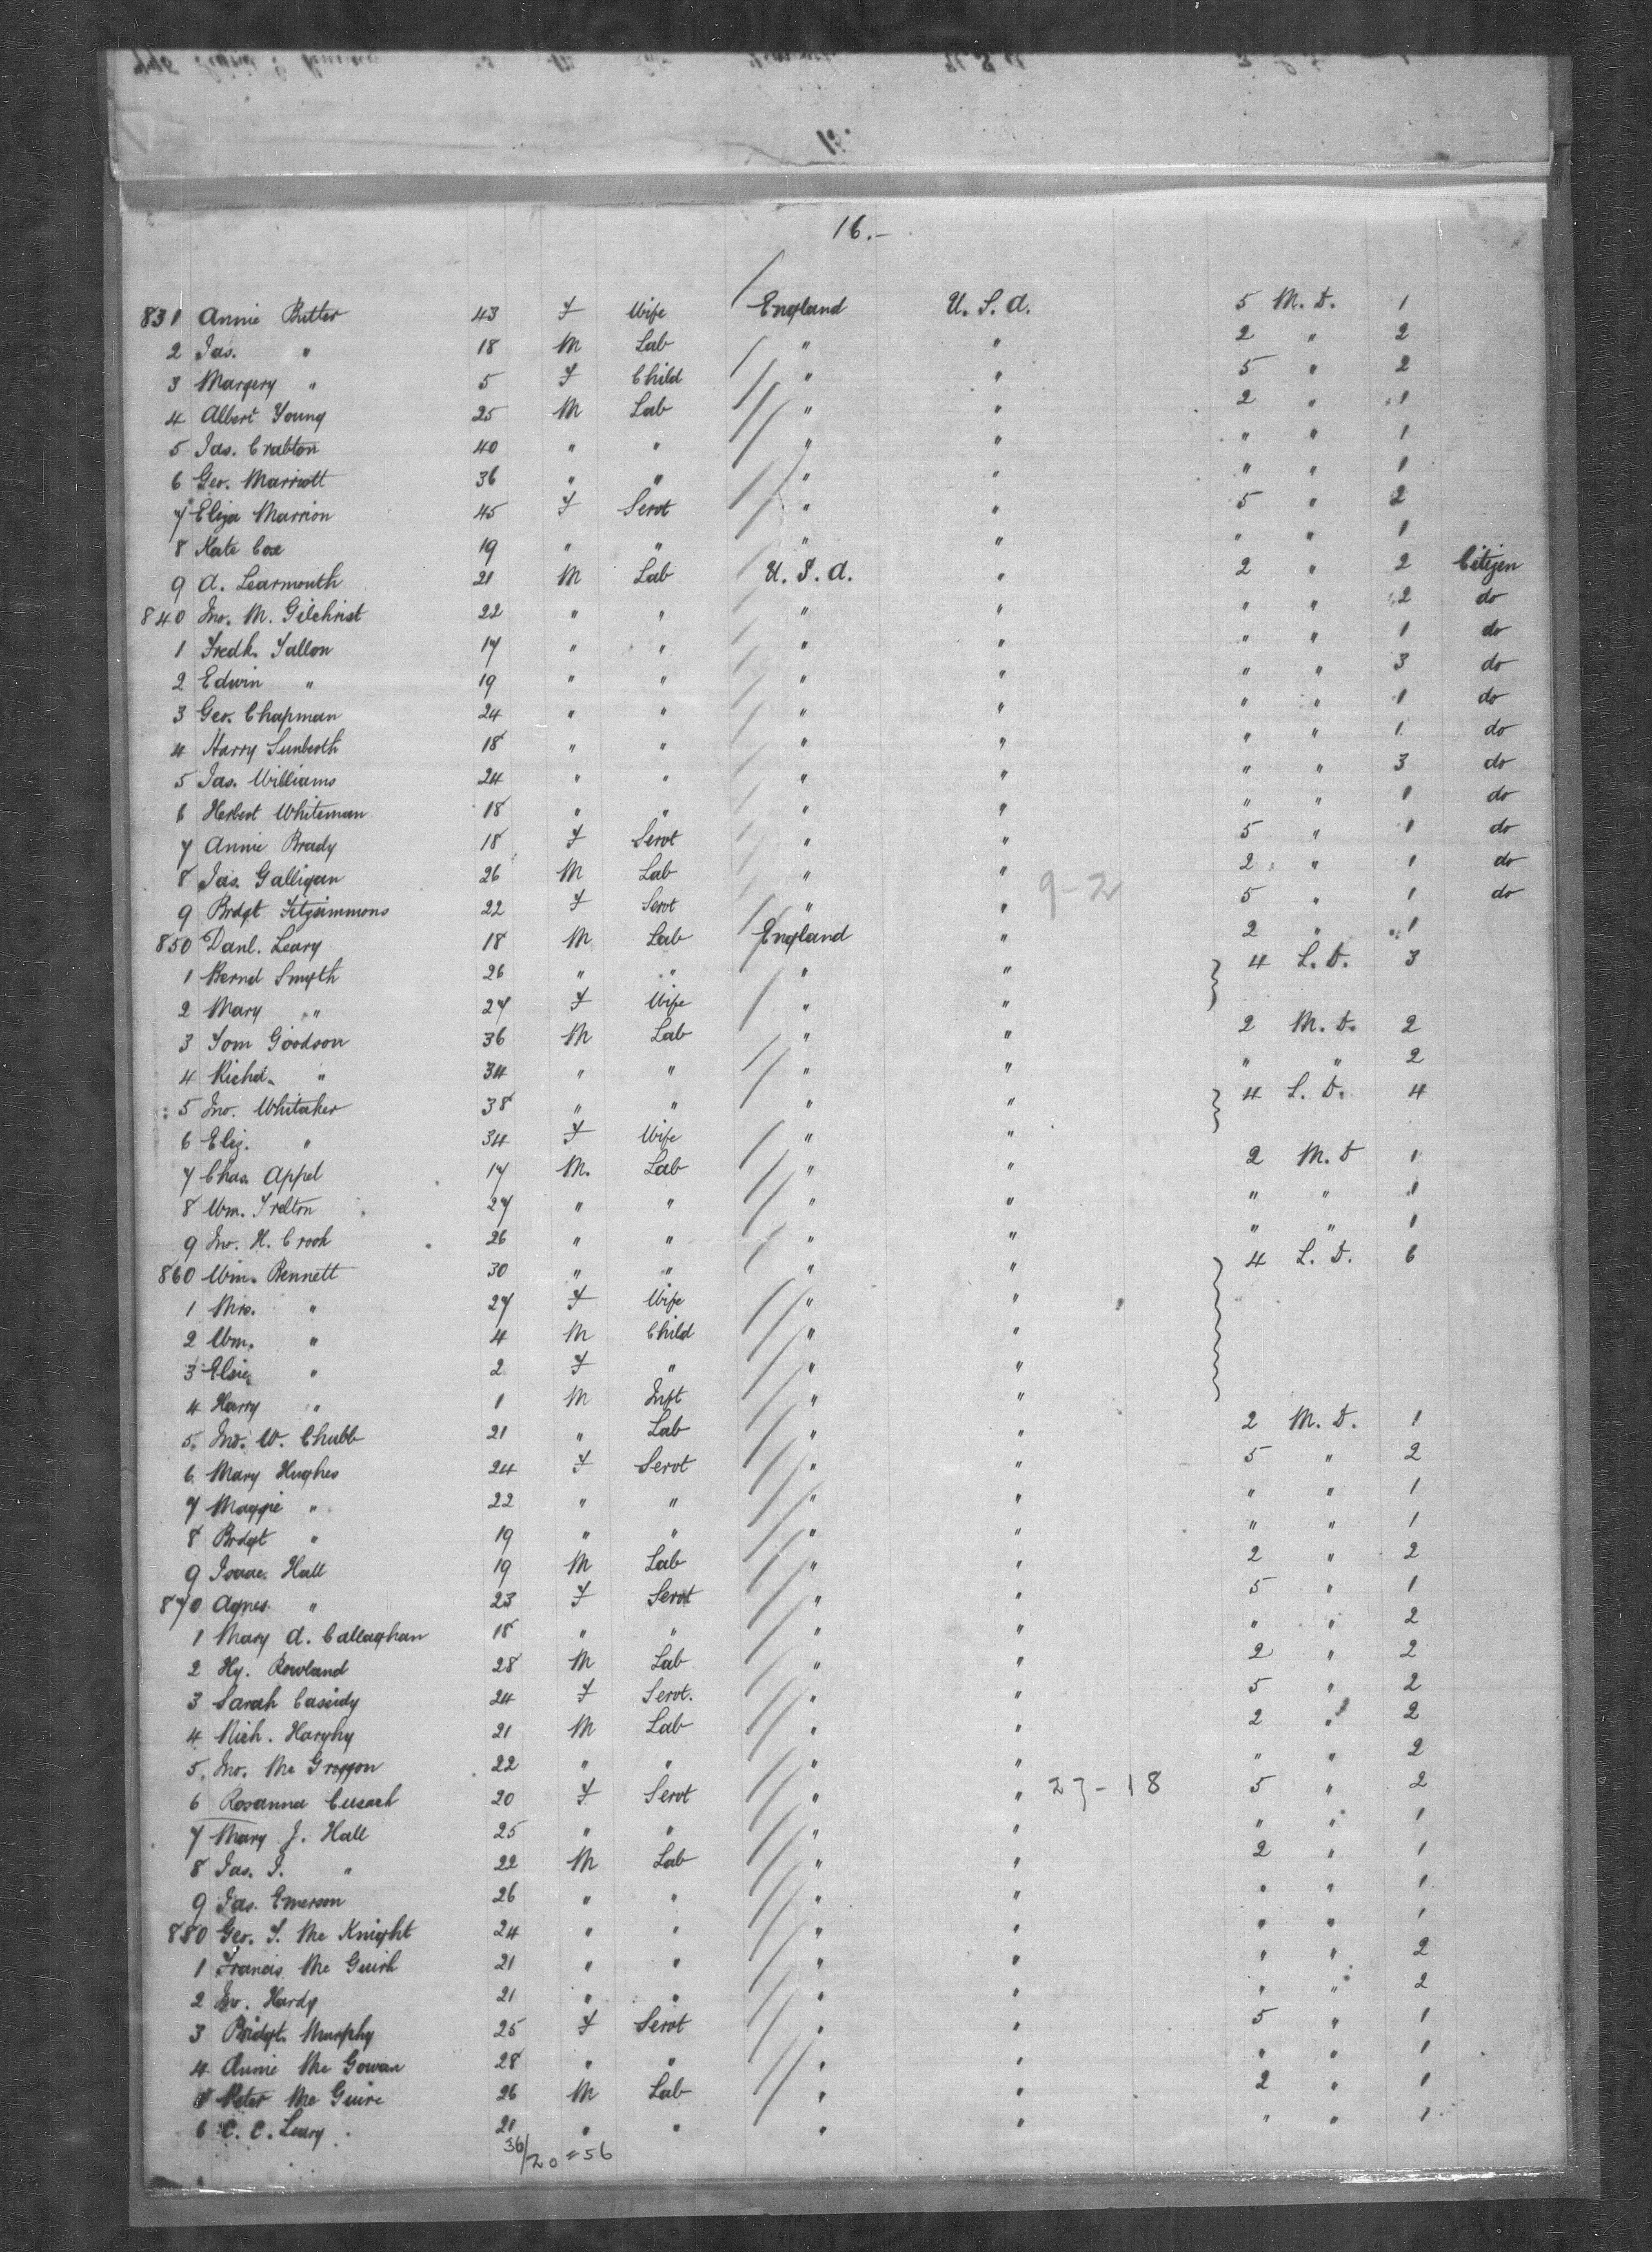 16.-
831 Annie Butter 43 F Wife England U.S.A. 5 M.D. 1
2 Jas. " 18 M Lab " " 2 " 2
3 Margery " 5 F Child " " 5 " 2
4 Albert Young 25 M Lab " " 2 " 1
5 Jas. Crabton 40 " " " " " " 1
6 Geo. Marriott 36 " " " " " " 1
7 Eliza Marrion 45 F Servt " " 5 " 2
8 Kate Coxe 19 " " " " " " 1
9 A. Learmouth 21 M Lab U.S.A. " 2 " 2 Citizen
840 Jno. M. Gilchrist 22 " " " " " " 2 do
1 Fredk. Tallon 17 " " " " " " 1 do
2 Edwin " 19 " " " " " " 3 do
3 Geo. Chapman 24 " " " " " " 1 do
4 Harry 18 " " " " " " 1 do
5 Jas. Williams 24 " " " " " " 3 do
6 Herbert Whiteman 18 " " " " " " 1 do
7 Annie Brady 18 F Servt " " 5 " 1 do
8 Jas. Galligan 26 M Lab " " 2 " 1 do
9 Brdgt Fitzsimmons 22 F Servt " " 9-2 5 " 1 do
850 Danl. Leary 18 M Lab England " 2 " 1
1 Bernd Smyth 26 " " " " 4 L.D. 3
2 Mary " 27 F Wife " "
3 Tom Goodson 36 M Lab " " 2 M.D. 2
4 Richd. " 34 " " " " " " 2
5 Jno. Whitaker 38 " " " " 4 L.D. 4
6 Eliz. " 34 F Wife " "
7 Chas. Appel 17 M. Lab " " 2 M.D 1
8 Wm. 27 " " " " " " 1
9 Jno. H. Crook 26 " " " " " " 1
860 Wm. Bennett 30 " " " " 4 L.D. 6
1 Mrs. " 27 F Wife " "
2 Wm. " 4 M Child " "
3 Elsie " 2 F " " "
4 Harry " 1 M Inft " "
5. Jno. W. Chubb 21 " Lab " " 2 M.D. 1
6 Mary Hughes 24 F Servt " " 5 " 2
7 Maggie " 22 " " " " " " 1
8 Brdgt " 19 " " " " " " 1
9 Isaac Hall 19 M Lab " " 2 " 2
870 Agnes " 23 F Servt " " 5 " 1
1 Mary A. Callaghan 18 " " " " " " 2
2 Hy. Rowland 28 M Lab " " 2 " 2
3 Sarah Casidy 24 F Servt. " " 5 " 2
4 Mich. 21 M Lab " " 2 " 2
5. Jno. Mc Groggon 22 " " " " " " 2
6 Rosanna Cusack 20 F Servt " " 23-18 5 " 2
7 Mary J. Hall 25 " " " " " " 1
8 Jas. J. " 22 M Lab " " 2 " 1
9 Jas. Emerson 26 " " " " " " 1
880 Geo. T. Mc Knight 24 " " " " " " 1
1 Francis Mc Guirk 21 " " " " " " 2
2 Jno. Hardy 21 " " " " " " 2
3 Bridgt. Murphy 25 F Servt " " 5 " 1
4 Annie Mc Gowan 28 " " " " " " 1
Peter Mc Guire 26 M Lab " " 2 " 1
6 C. C. Leary 21 " " " " " " 1
36/20=56